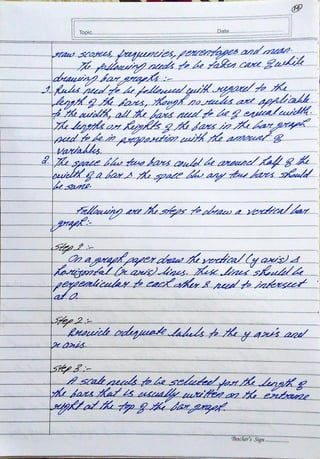 Topic
Date
raw scores, frequencies, percentages and mean.
The following needs to be taken care of while
drawing bar graphs :-
1. Rules need to be followed with regard to the
length of the bars, though no rules are applicable
to the width, all the bars need to be of equal width.
The lengths or heights of the bars in the bar graph
need to be in proportion with the amount of
variables.
2. The space b/w two bars could be around half of the
width of a bar & the space b/w any two bars should
be same.
Following are the steps to draw a vertical bar
graph:-
Step 1 :-
On a graph paper draw the vertical (y axis) &
horizontal (x axis) lines. These lines should be
perpendicular to each other & need to intersect
at 0.
Step 2 :-
Provide adequate labels to the y axis and
x axis.
Step 3 :-
A scale needs to be selected for the length of
the bars that is usually written on the extreme
right at the top of the bar graph.
Teacher's Sign